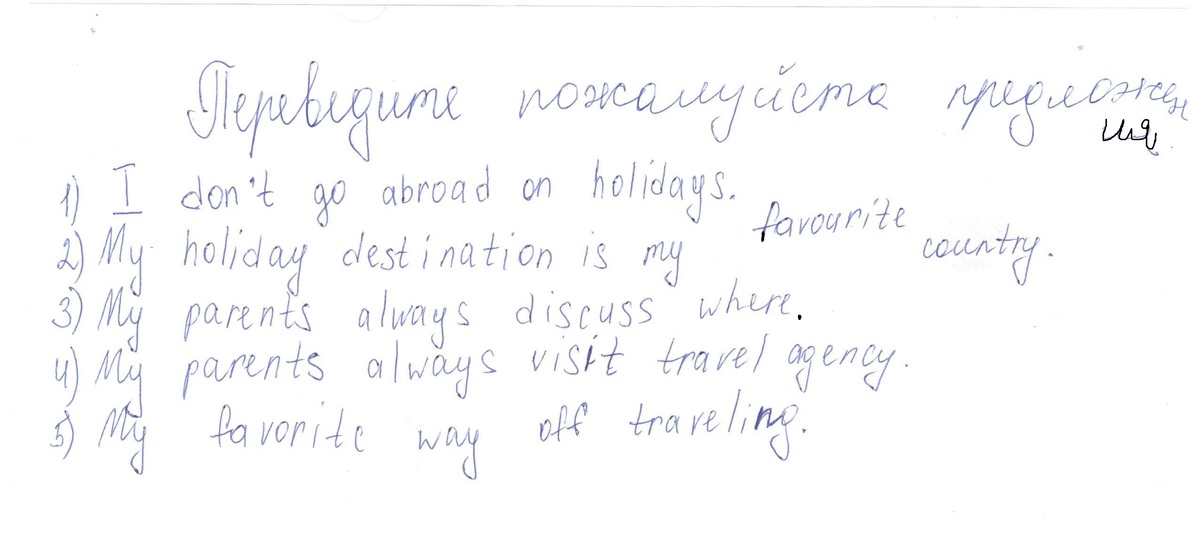 Переведите пожалуйста предложен
ия
1) I don't go abroad on holidays.
2) My holiday destination is my favourite country.
3) My parents always discuss where.
4) My parents always visit travel agency.
5) My favorite way off traveling.